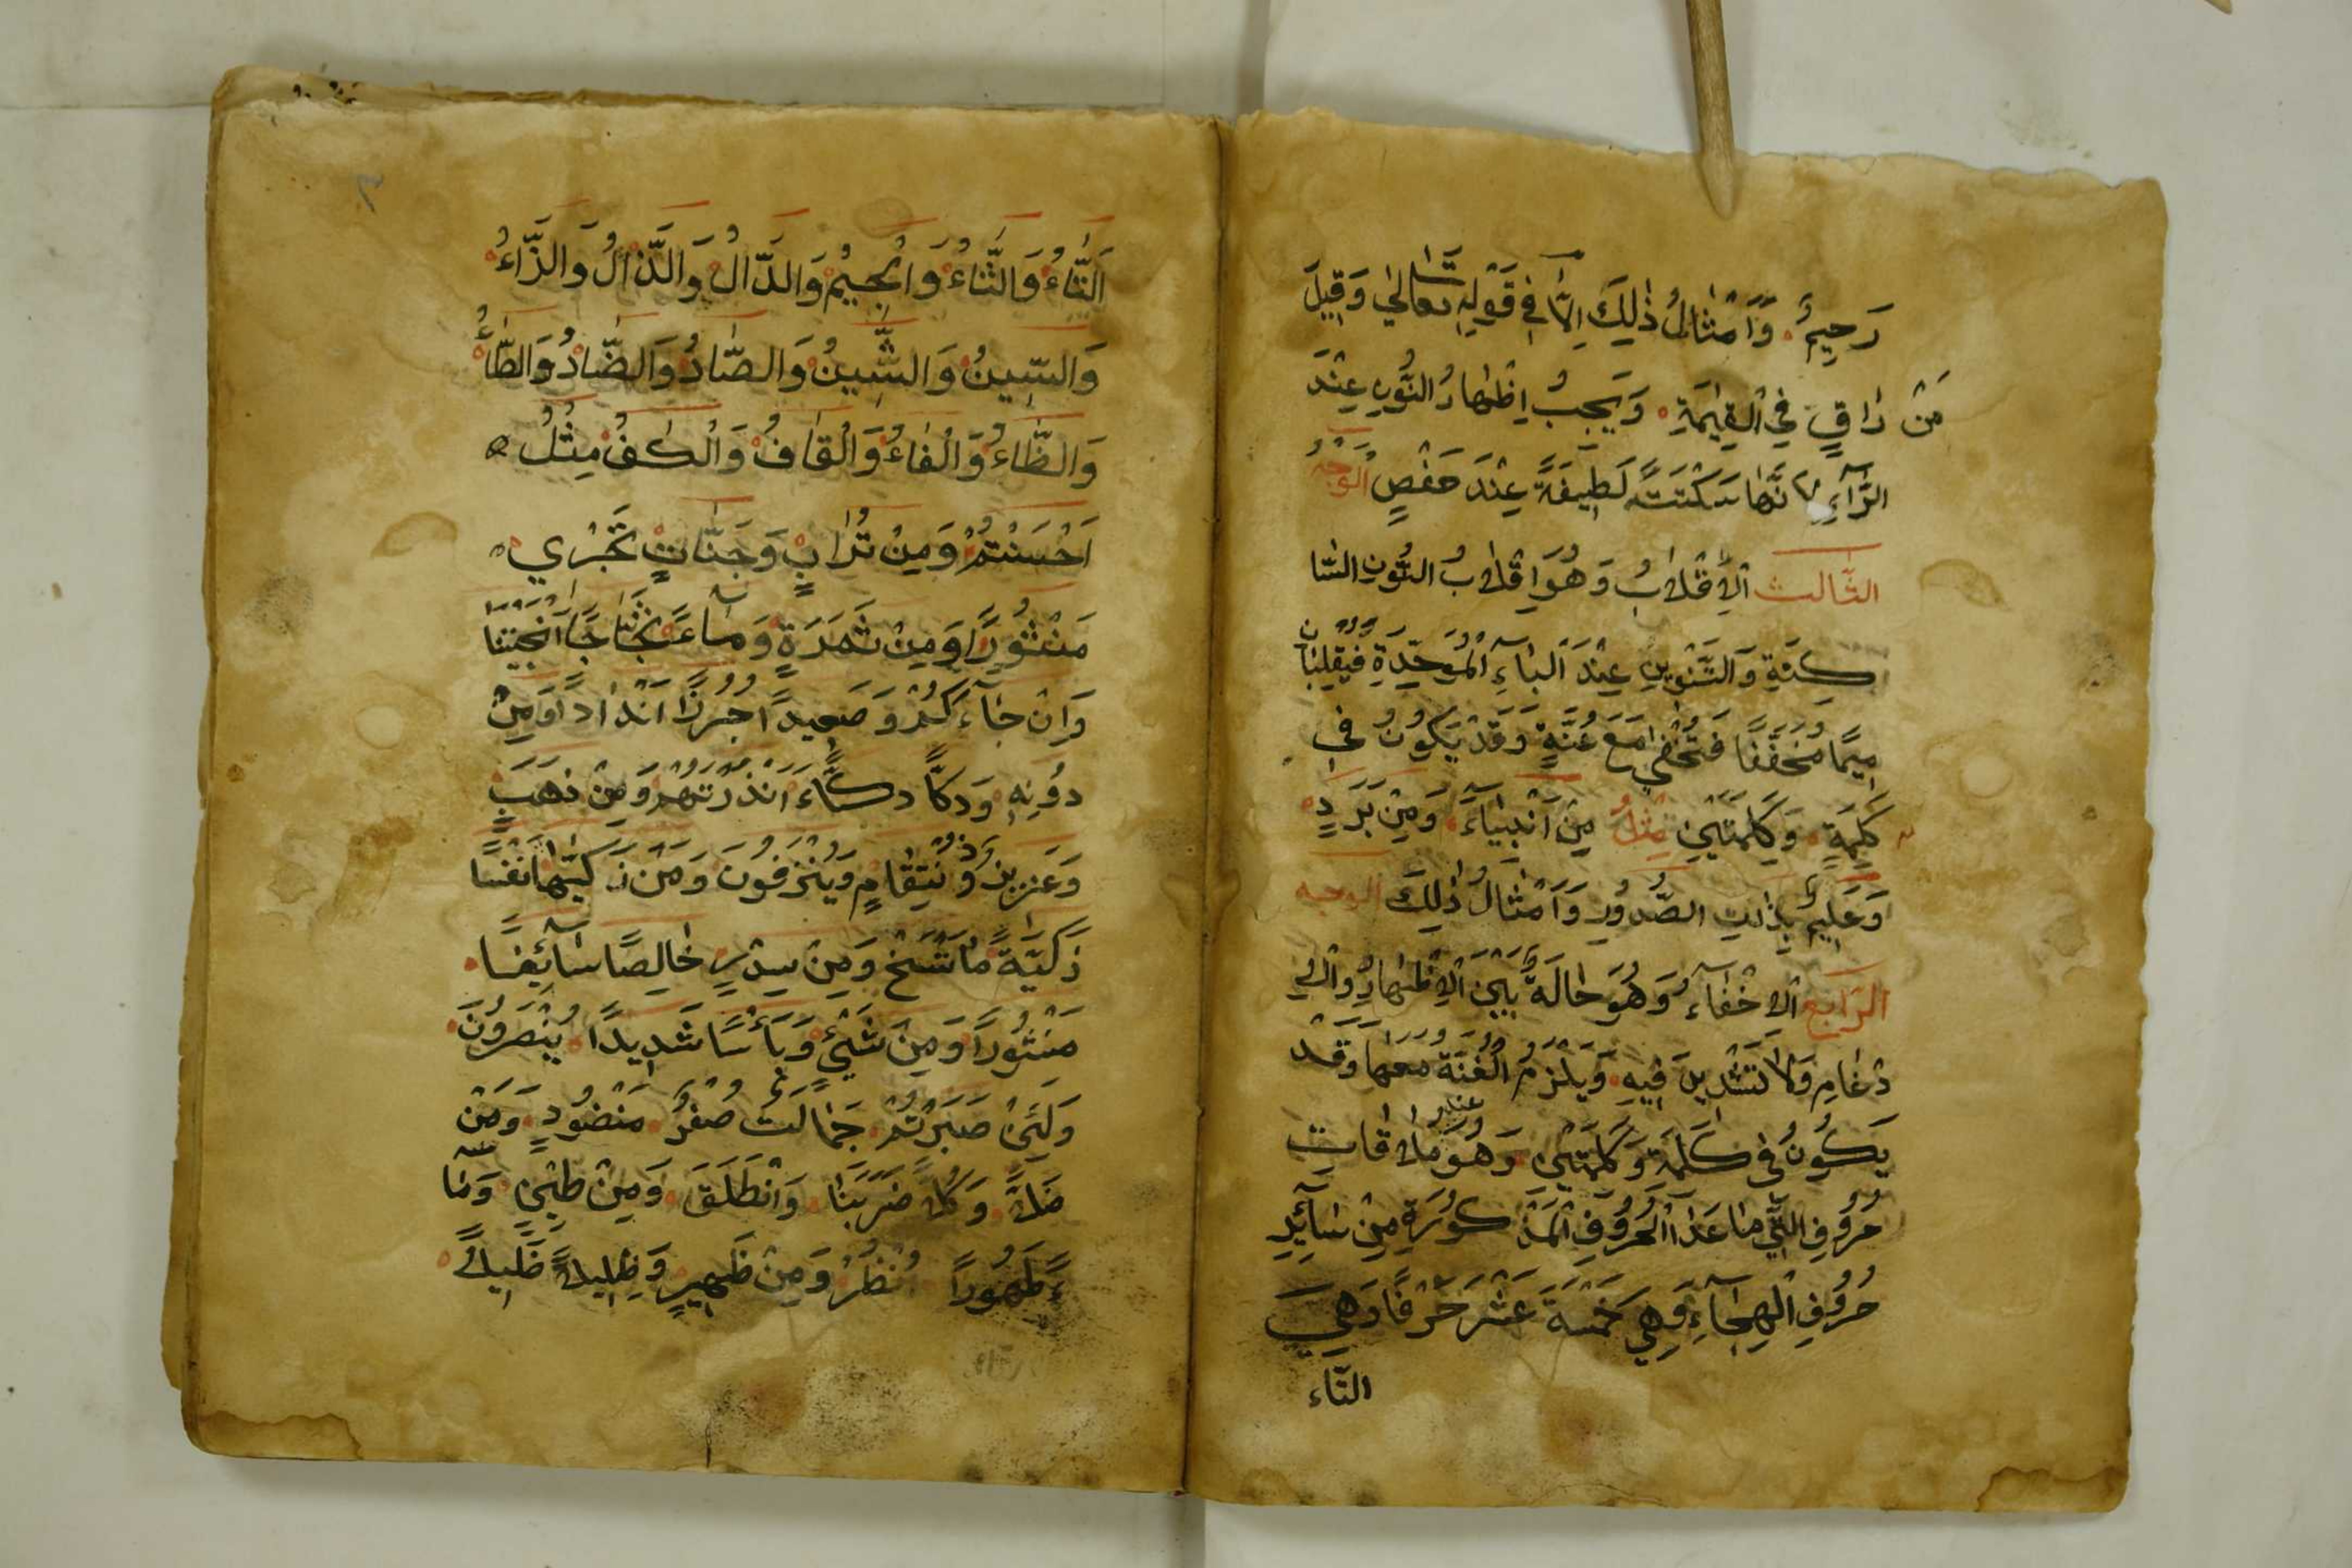 رَحِيمٌ وَاَمْثَالُ ذٰلِكَ اِلَّا فِي قَوْلِهِ تَعَالٰي وَقِيلَ
مَنْ رَاقٍ فِي الْقِيٰمَةِ وَيَجِبُ اِظْهَارُ النُّونِ عِنْدَ
الرَّاءِ لِاَنَّهَا سَكْتَةٌ لَطِيفَةً عِنْدَ حَفْصٍ الْوَجْهُ
الثَّالِث اَلْاِقْلَابُ وَهُوَ اِقْلَابُ النُّونِ السَّا
كِنَةِ وَالتَّنْوِينِ عِنْدَ الْبَاءِ الْمُوَحَّدَةِ فَيُقْلَبَانِ
مِيمًا مُخَفَّفًا فَتُخْفٰي مَعَ غُنَّةٍ وَقَدْ يَكُونُ فِي
كَلِمَةٍ وَكَلِمَتَيْنِ مِثْلُ مِنْ اَنْبِيَاءَ وَمِنْ بَرَدٍ
وَعَلِيمٌ بِذَاتِ الصُّدُورِ وَاَمْثَالُ ذٰلِكَ الوجه
الرَّابِع اَلْاِخْفَاءُ وَهُوَ حَالَةٌ بَيْنَ الْاِظْهَارِ وَالْاِ
دْغَامِ وَلَا تَشْدِيدَ فِيهِ وَيَلْزَمُ الْغُنَّةُ مَعَهَا وَقَدْ
يَكُونُ فِي كَلِمَةٍ وَكَلِمَتَيْنِ وَهُوَ عند مُلَاقَاتِ
حُرُوفِ الَّتِي مَا عَدَا الْحُرُوفِ الْمَذْكُورَةِ مِنْ سَائِرِ
حُرُوفِ الْهِجَاءِ وَهِيَ خَمْسَةَ عَشَرَ حَرْفًا وَهِيَ
التاء
اَلتَّاءُ وَالثَّاءُ وَالْجِيمُ وَالدَّالُ وَالذَّالُ وَالزَّاءُ
وَالسِّينُ وَالشِّينُ وَالصَّادُ وَالضَّادُ وَالطَّاءُ
وَالظَّاءُ وَالْفَاءُ وَالْقَافُ وَالْكَفُ مِثْلُ
اَحْسَنْتُمْ وَمِنْ تُرَابٍ وَجَنَّاتٍ تَجْرِي
مَنْثُورًا وَمِنْ ثَمَرَةٍ وَمَاءً ثَجَّاجًا اَنْجَيْنَا
وَاِنْ جَاءَكُمْ وَصَعِيدًا جُرُزًا اَنْدَادًا وَمِنْ
دُونِهِ وَدَكًّا دَكَّاءَ اَنْذَرْتَهُمْ وَمِنْ ذَهَبٍ
وَعَزِيزٌ ذُو نْتِقَامٍ وَيُنْزَفُونَ وَمَنْ زَكّيٰهَا نَفْسًا
زَكِيَّةً مَا نَنْسَخْ وَمِنْ سِدْرٍ خَالِصًا سَائِغًا
مَنْشُورًا وَمِنْ شَيْئٍ وَبَاْسًا شَدِيدًا يُنْصَرُونَ
وَلَئِنْ صَبَرْتُمْ جِمَالَتٌ صُفْرٌ مَنْضُودٍ وَمَنْ
ضَلَّ وَكُلًّا ضَرَبْنَا وَانْطَلَقَ وَمِنْ طِينٍ وَمَا
ءً طَهُورًا اُنْظُرْ وَمِنْ ظَهِيرٍ وَظِلِيلًا ظَلِيلًا